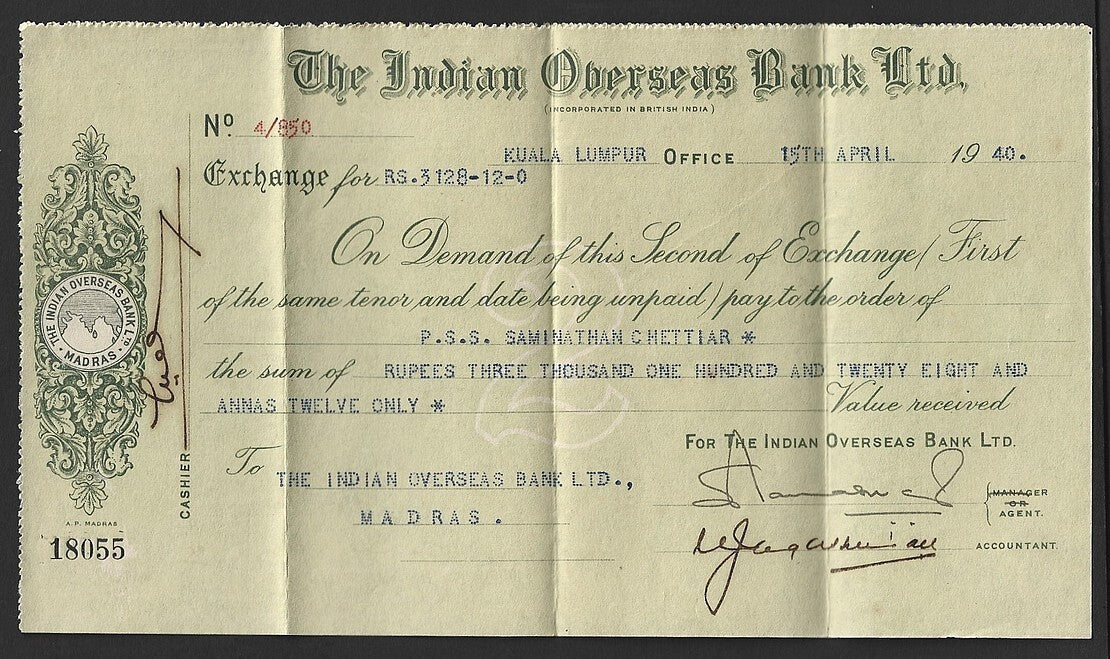 The Indian Overseas Bank Ltd.
(INCORPORATED IN BRITISH INDIA)
No. 4/850
KUALA LUMPUR OFFICE 15TH APRIL 19 40.
Exchange for RS.3128-12-0
On Demand of this Second of Exchange (First
of the same tenor and date being unpaid) pay to the order of
P.S.S. SAMINATHAN CHETTIAR *
the sum of RUPEES THREE THOUSAND ONE HUNDRED AND TWENTY EIGHT AND
ANNAS TWELVE ONLY * Value received
FOR THE INDIAN OVERSEAS BANK LTD.
To THE INDIAN OVERSEAS BANK LTD.,
MADRAS.
MANAGER
OR
AGENT.
ACCOUNTANT.
CASHIER
THE INDIAN OVERSEAS BANK LTD.
MADRAS
A.P. MADRAS
18055
2